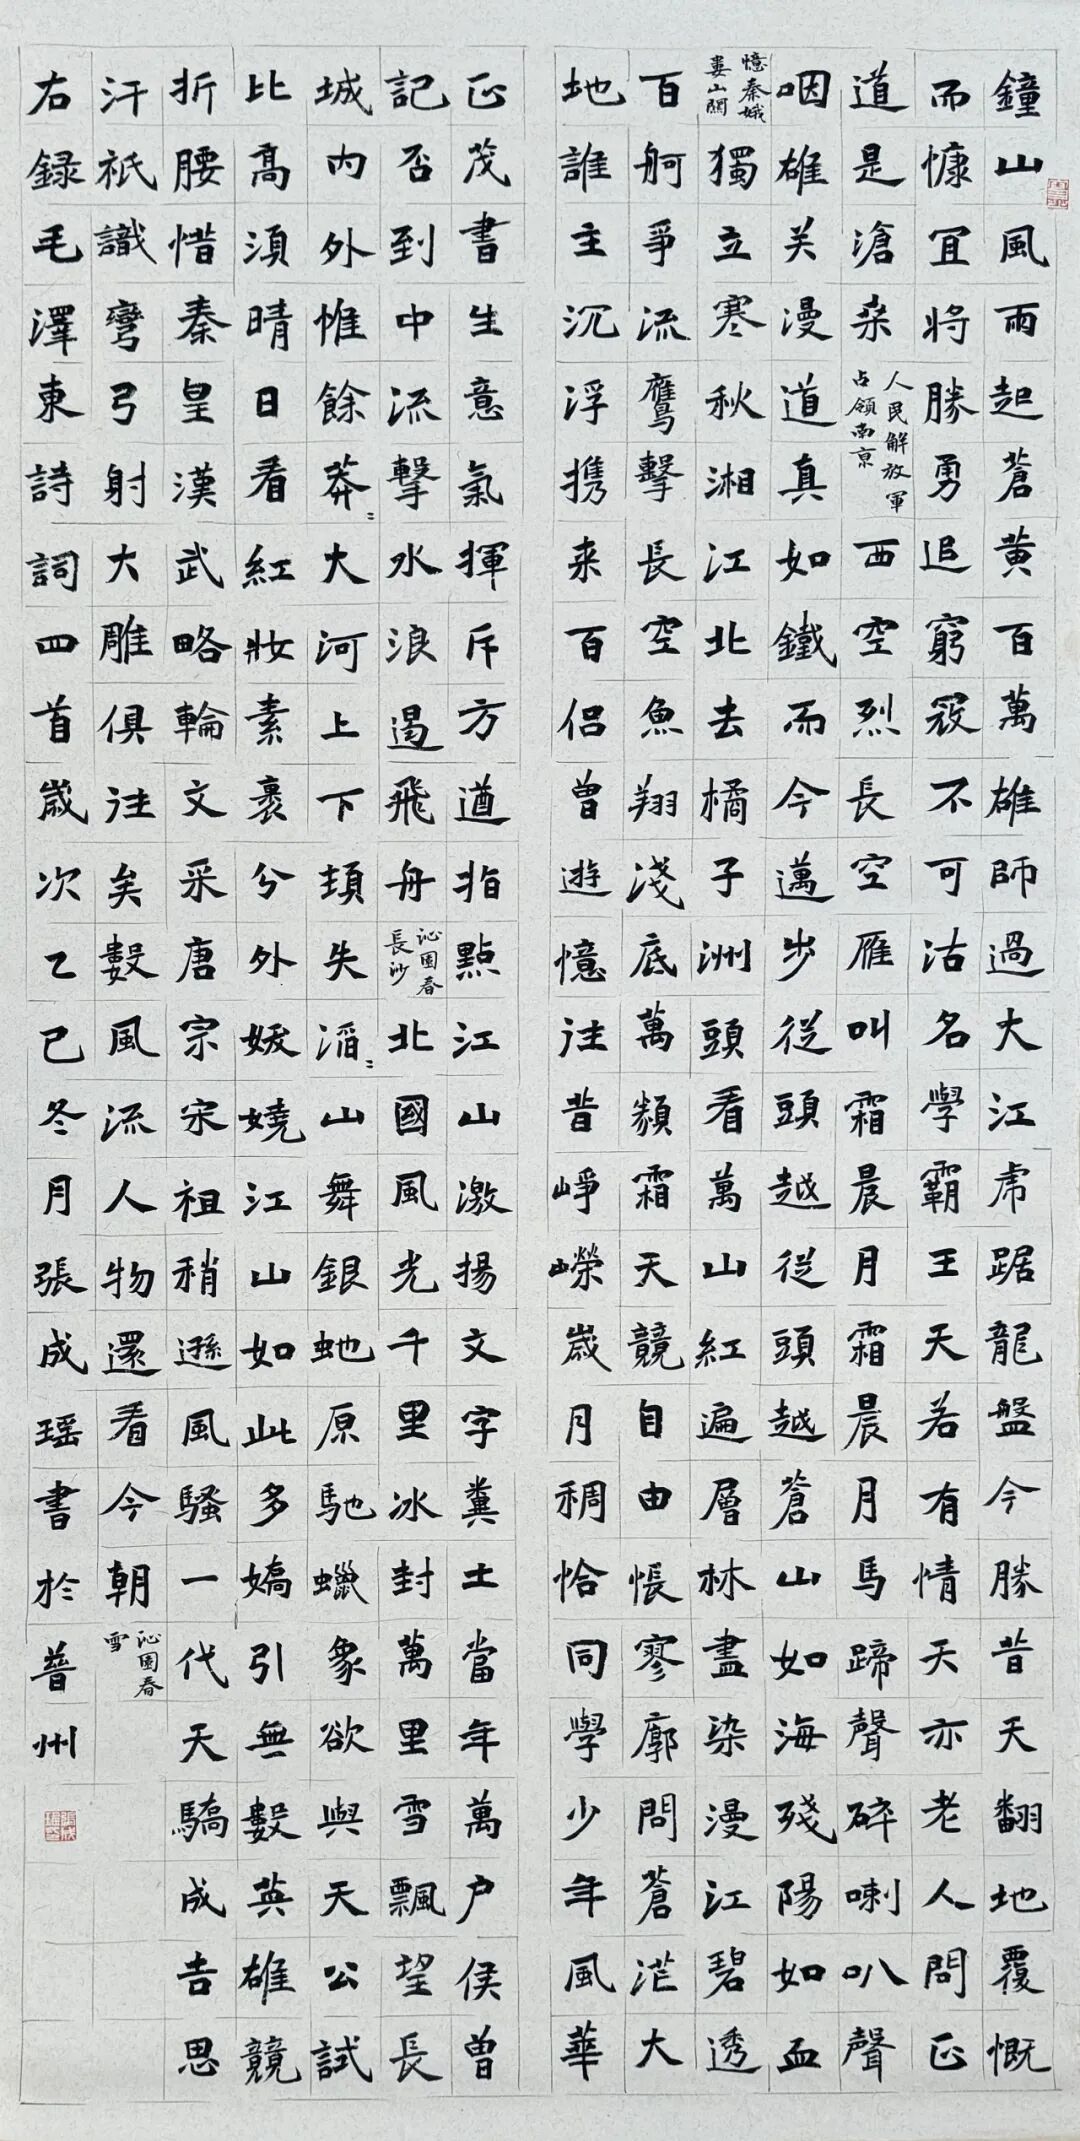 鐘山風雨起蒼黃百萬雄師過大江虎踞龍盤今勝昔天翻地覆慨
而慷宜將勝勇追窮寇不可沽名學霸王天若有情天亦老人問正
道是滄桑人民解放軍占領南京西空烈長空雁叫霜晨月霜晨月馬蹄聲碎喇叭聲
咽雄关漫道真如鐵而今邁步從頭越從頭越蒼山如海殘陽如血
憶秦娥婁山關獨立寒秋湘江北去橘子洲頭看萬山紅遍層林盡染漫江碧透
百舸爭流鷹擊長空魚翔淺底萬類霜天競自由悵寥廓問蒼茫大
地誰主沉浮携来百侶曾遊憶往昔崢嶸歲月稠恰同學少年風華
正茂書生意氣揮斥方遒指點江山激揚文字糞土當年萬户侯曾
記否到中流擊水浪遏飛舟沁園春長沙北國風光千里冰封萬里雪飄望長
城内外惟餘莽〻大河上下頓失滔〻山舞銀蛇原馳蠟象欲與天公試
比高須晴日看紅妝素裹兮外妖嬈江山如此多嬌引無數英雄競
折腰惜秦皇漢武略輪文采唐宗宋祖稍遜風騷一代天驕成吉思
汗祇識彎弓射大雕俱往矣數風流人物還看今朝沁園春雪
右録毛澤東詩詞四首歲次乙巳冬月張成瑶書於普州